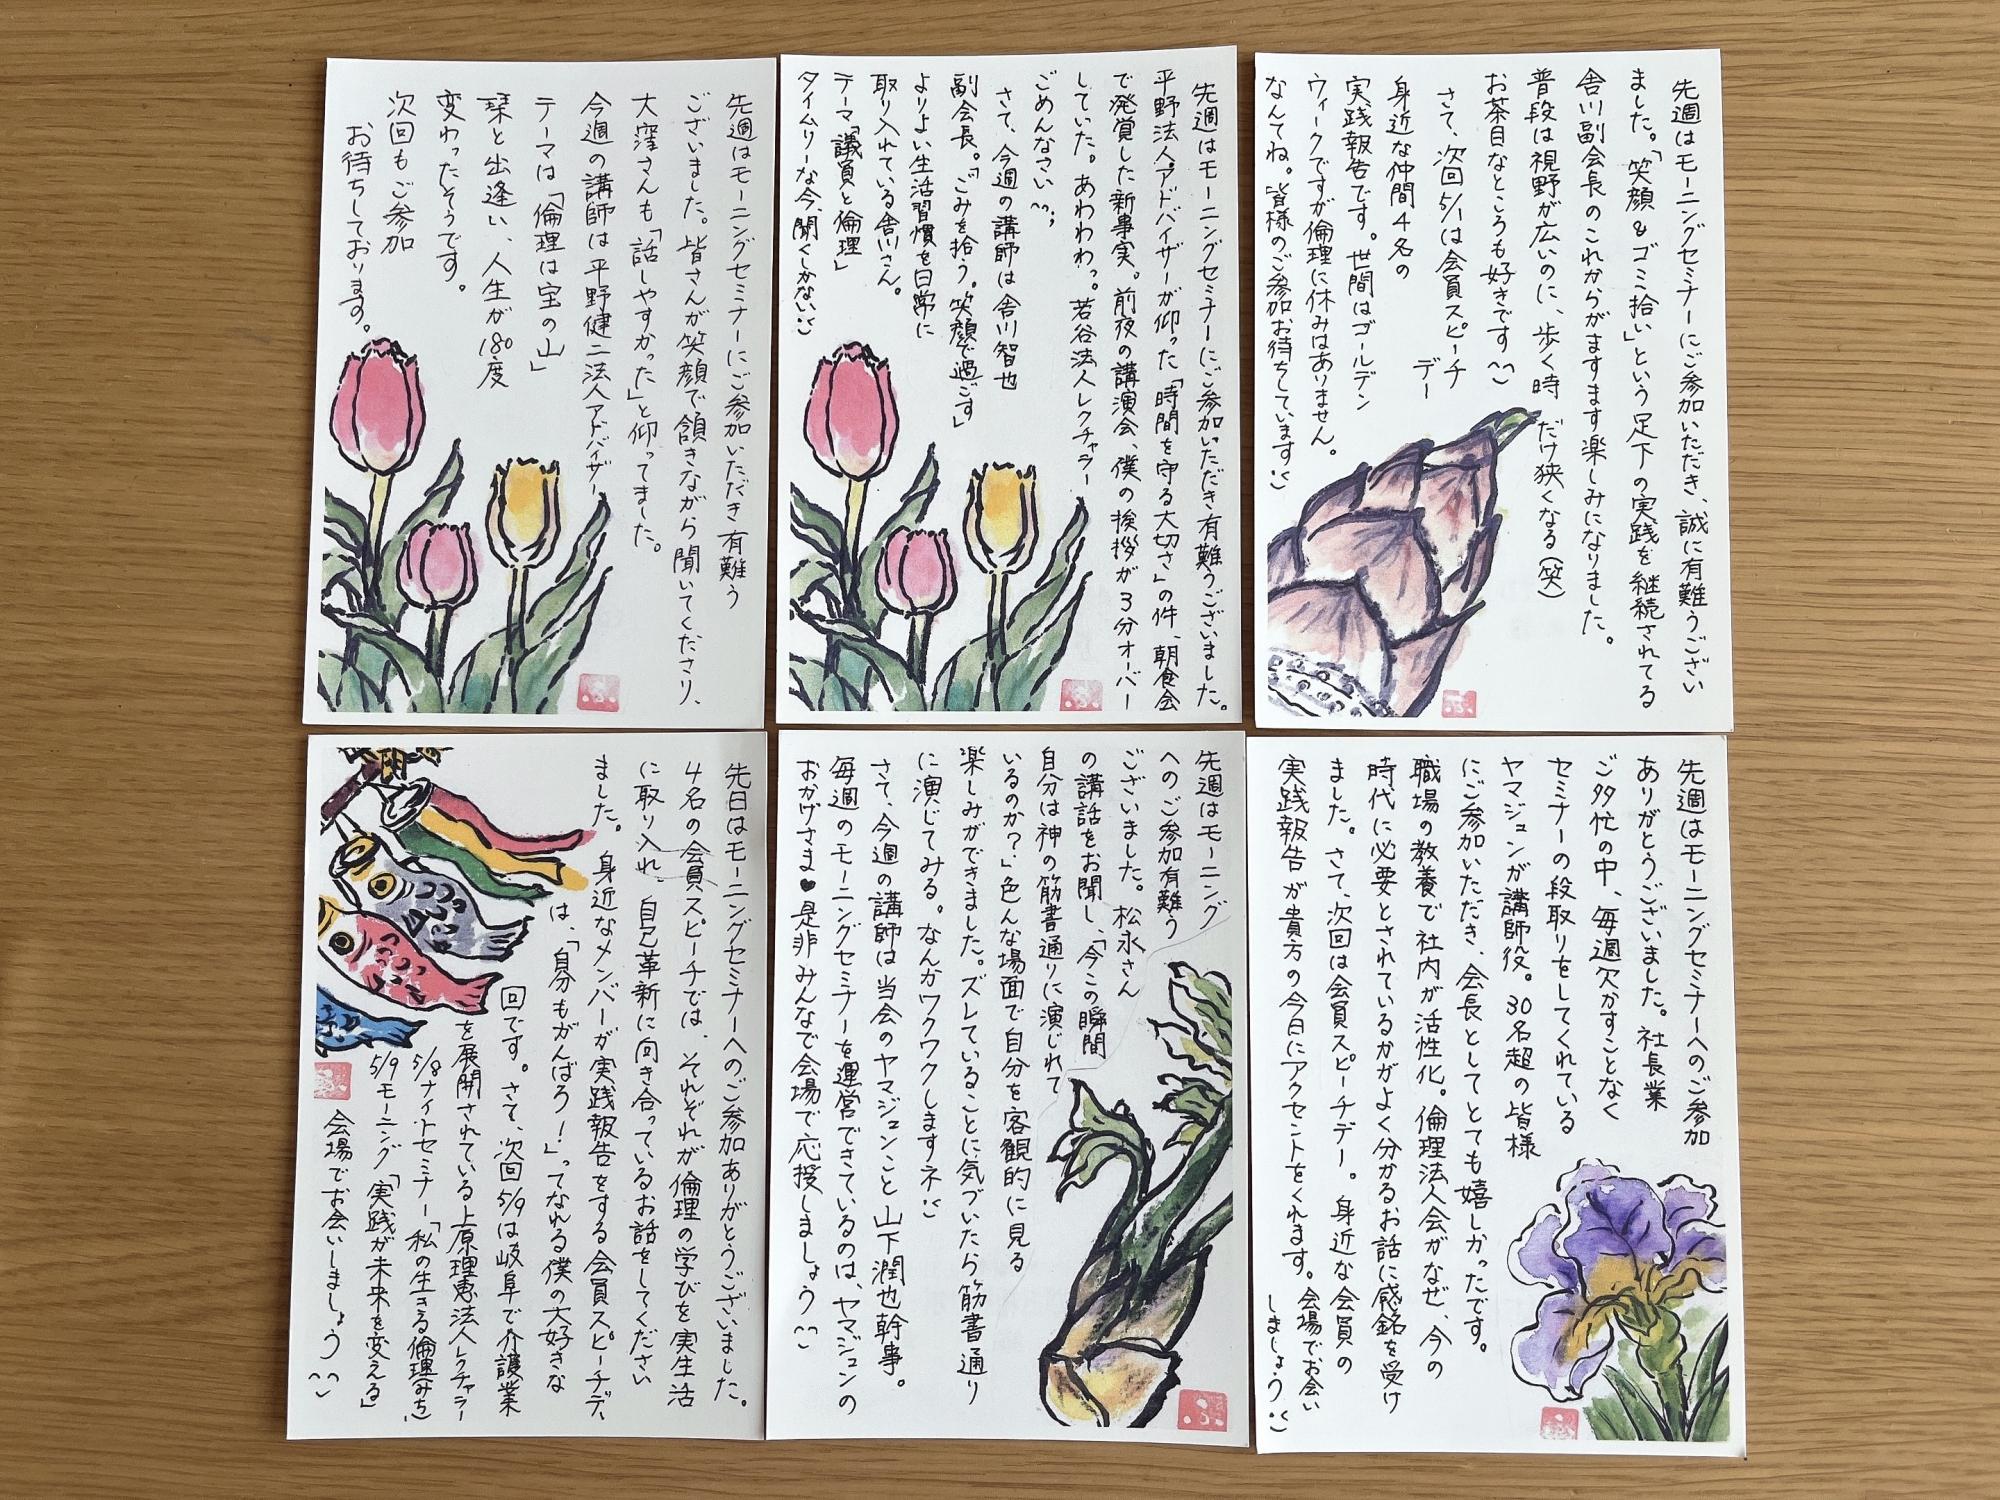 先週はモーニングセミナーにご参加いただき有難う
ございました。皆さんが笑顔で頷きながら聞いてくださり、
大窪さんも「話しやすかった」と仰ってました。
今週の講師は平野健二法人アドバイザー
テーマは「倫理は宝の山」
栞と出逢い、人生が180度
変わったそうです。
次回もご参加
お待ちしております。
先週はモーニングセミナーにご参加いただき有難うございました。
平野法人アドバイザーが仰った「時間を守る大切さ」の件、朝食会
で発覚した新事実。前夜の講演会、僕の挨拶が3分オーバー
していた。あわわわっ。若谷法人レクチャラー
ごめんなさい^^;
さて、今週の講師は舎川智也
副会長。「ごみを拾う。笑顔で過ごす」
よりよい生活習慣を日常に
取り入れている舎川さん。
テーマ「議員と倫理」
タイムリーな今、聞くしかない:)
先週はモーニングセミナーにご参加いただき、誠に有難うござい
ました。「笑顔&ゴミ拾い」という足下の実践を継続されてる
舎川副会長のこれからがますます楽しみになりました。
普段は視野が広いのに、歩く時だけ狭くなる(笑)
お茶目なところも好きです^^
さて、次回5/1は会員スピーチ
デー
身近な仲間4名の
実践報告です。世間はゴールデン
ウィークですが倫理に休みはありません。
なんてね。皆様のご参加お待ちしています:)
先日はモーニングセミナーへのご参加ありがとうございました。
4名の会員スピーチでは、それぞれが倫理の学びを実生活
に取り入れ、自己革新に向き合っているお話をしてください
ました。身近なメンバーが実践報告をする会員スピーチデー
は、「自分もがんばろー!」ってなれる僕の大好きな
回です。さて、次回5/9は岐阜で介護業
を展開されている上原理恵法人レクチャラー
5/8ナイトセミナー「私の生きる倫理みち」
5/9モーニング「実践が未来を変える」
会場でお会いしましょう^^
先週はモーニング
へのご参加有難う
ございました。松永さん
の講話をお聞し、「今この瞬間
自分は神の筋書通りに演じれて
いるのか?」色んな場面で自分を客観的に見る
楽しみができました。ズレていることに気づいたら筋書通り
に演じてみる。なんかワクワクしますネ:)
さて、今週の講師は当会のヤマジュンこと山下潤也幹事。
毎週のモーニングセミナーを運営できているのは、ヤマジュンの
おかげさま♥是非みんなで会場で応援しましょう^^
先週はモーニングセミナーへのご参加
ありがとうございました。社長業
ご多忙の中、毎週欠かすことなく
セミナーの段取りをしてくれている
ヤマジュンが講師役。30名超の皆様
にご参加いただき、会長としてとても嬉しかったです。
職場の教養で社内が活性化。倫理法人会がなぜ、今の
時代に必要とされているかがよく分かるお話に感銘を受け
ました。さて、次回は会員スピーチデー。身近な会員の
実践報告が貴方の今日にアクセントをくれます。会場でお会い
しましょう:)